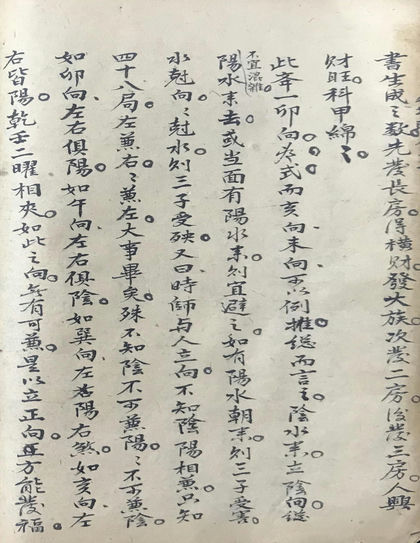 書生成之数先發長房得横財發大族次發二房後發三房人興
財旺科甲綿〻
此举一卯向為式而亥向未向可以例推總而言之陰水来立陰向總
不宜混雜
陽水来去或当面有陽水来則宜避之如有陽水朝来則三子受害
水尅向〻尅水則三子受殃又曰時師与人立向不知陰陽相兼只知
四十八局左兼右〻兼左大事畢矣殊不知陰不可兼陽〻不可兼陰
如卯向左右俱陽如午向左右俱陰如巽向左陽右煞如亥向左
右皆陽乾壬二曜相夾如此之向無有可兼是以立正向正方能發福